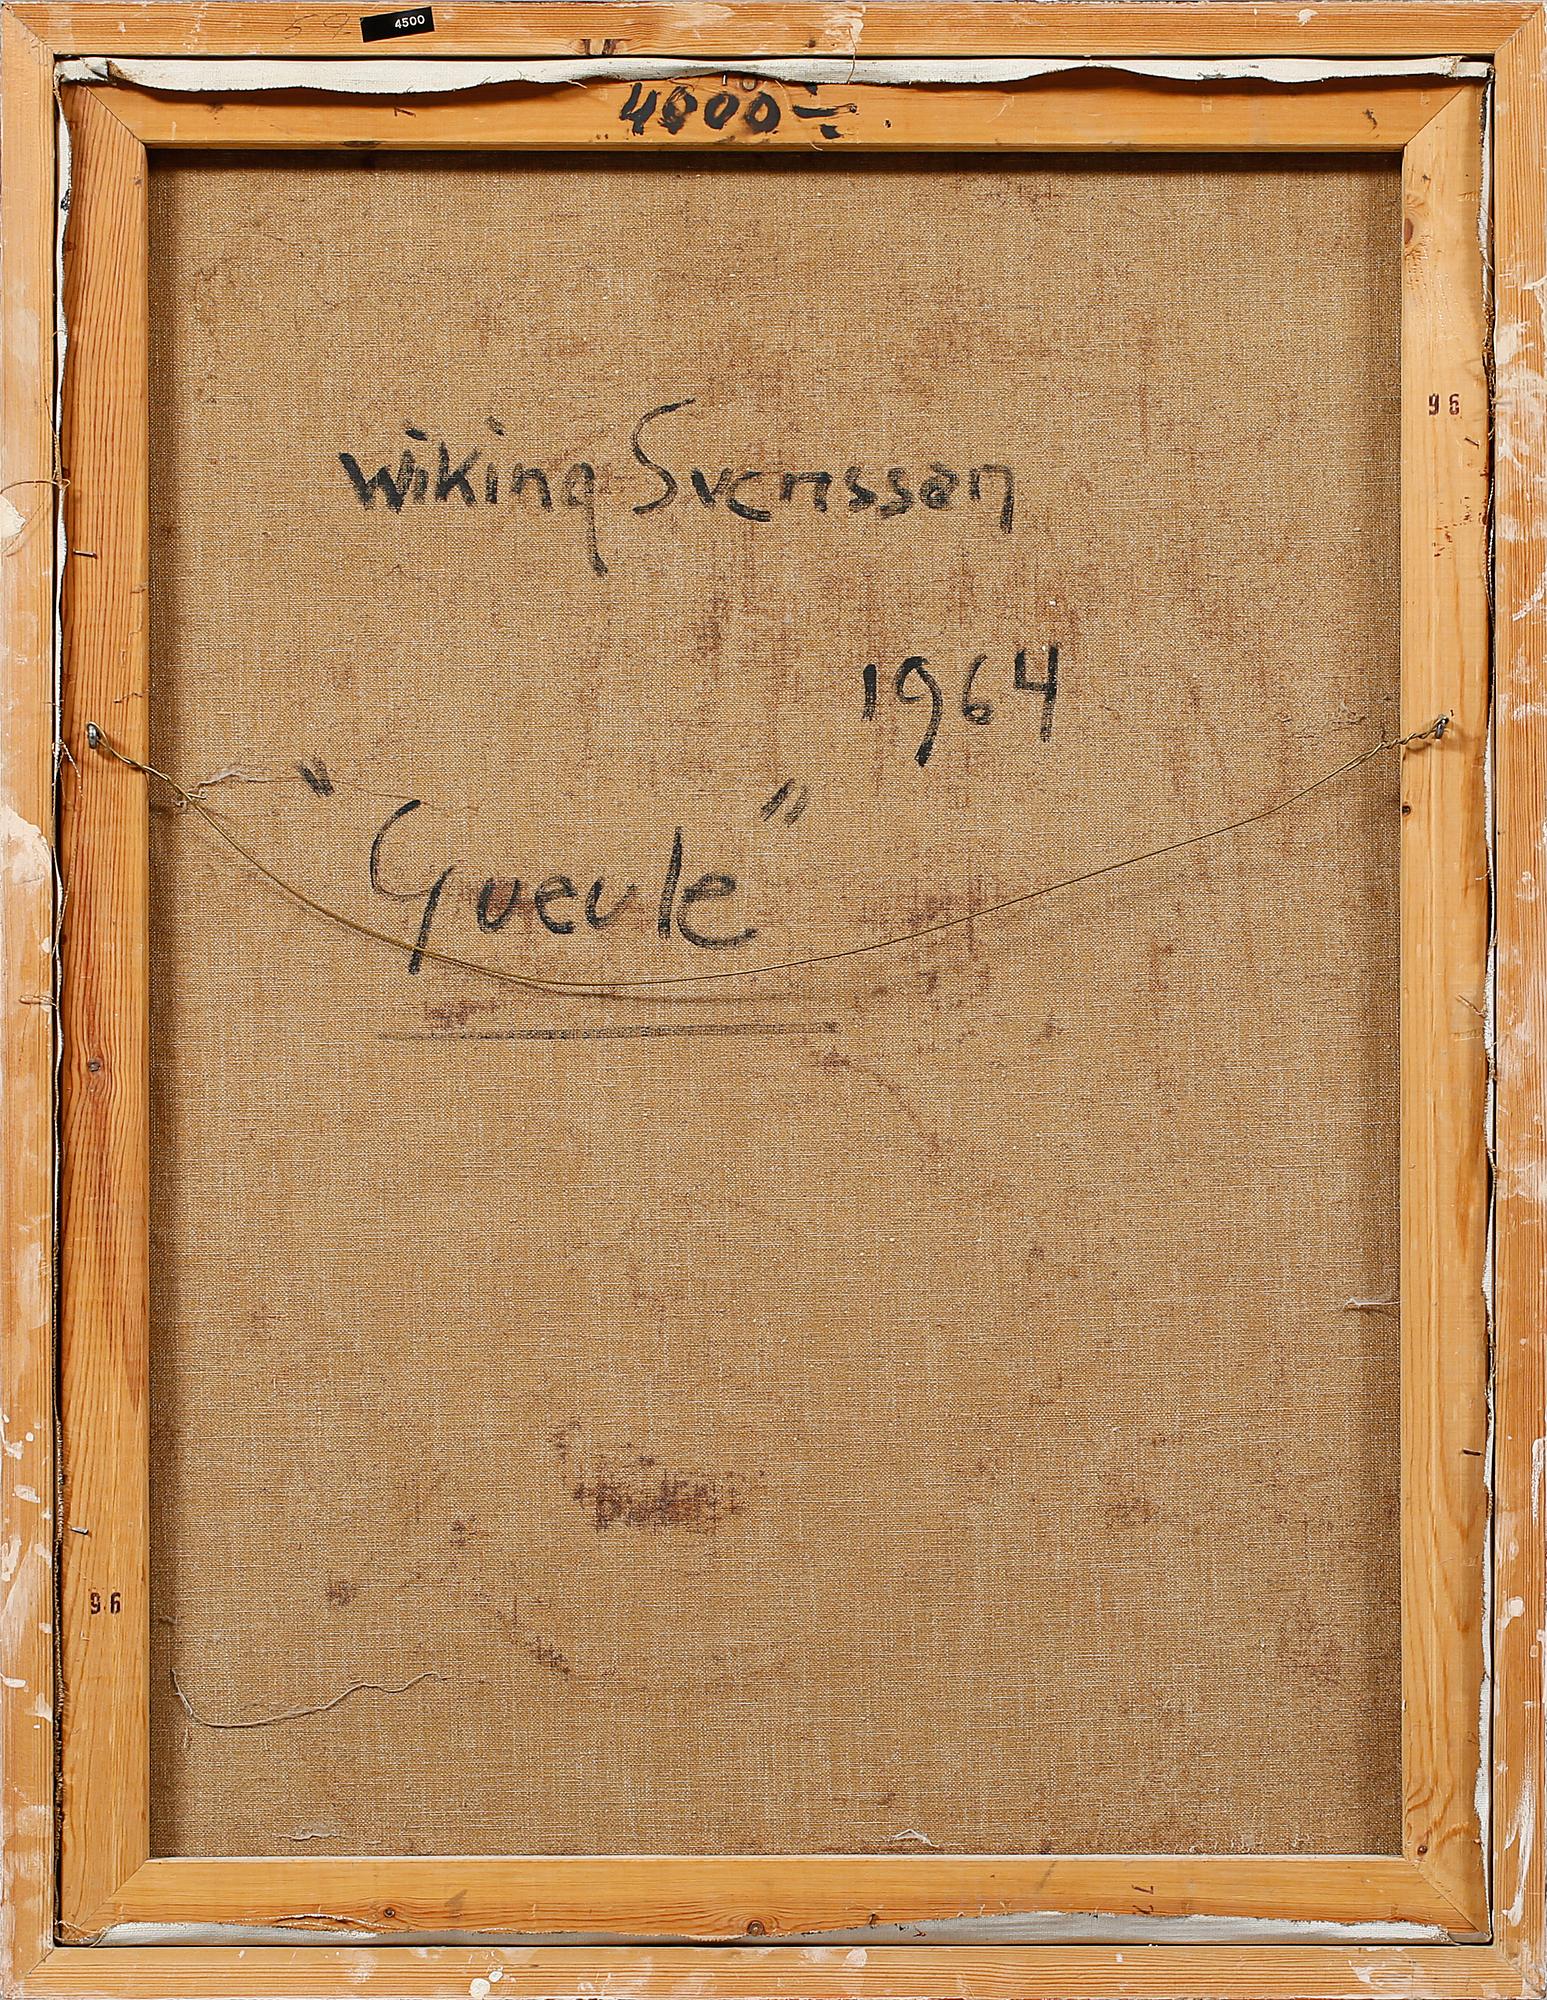 4500
4000 :-
Wiking Svensson
1964
"Gueule"
96
96